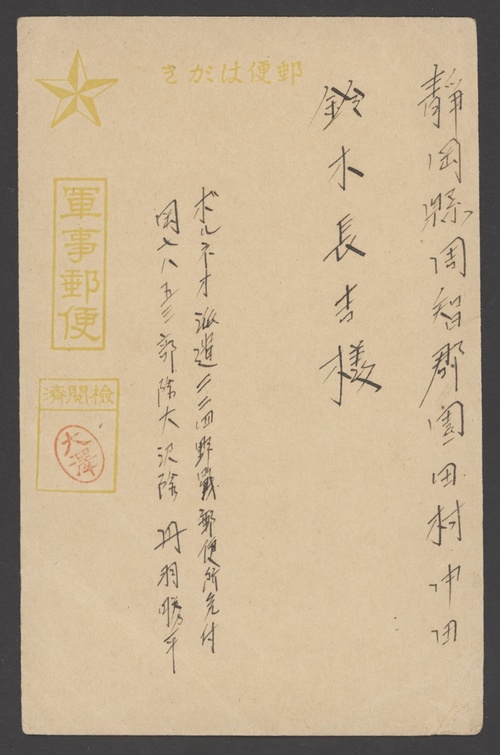 郵便はがき
静岡縣周智郡園田村中田
鈴木長吉様
ボルネオ派遣二三四野戰郵便所氣付
岡七八五三部隊大沢隊 丹羽勝平
軍事郵便
検閲濟
大澤